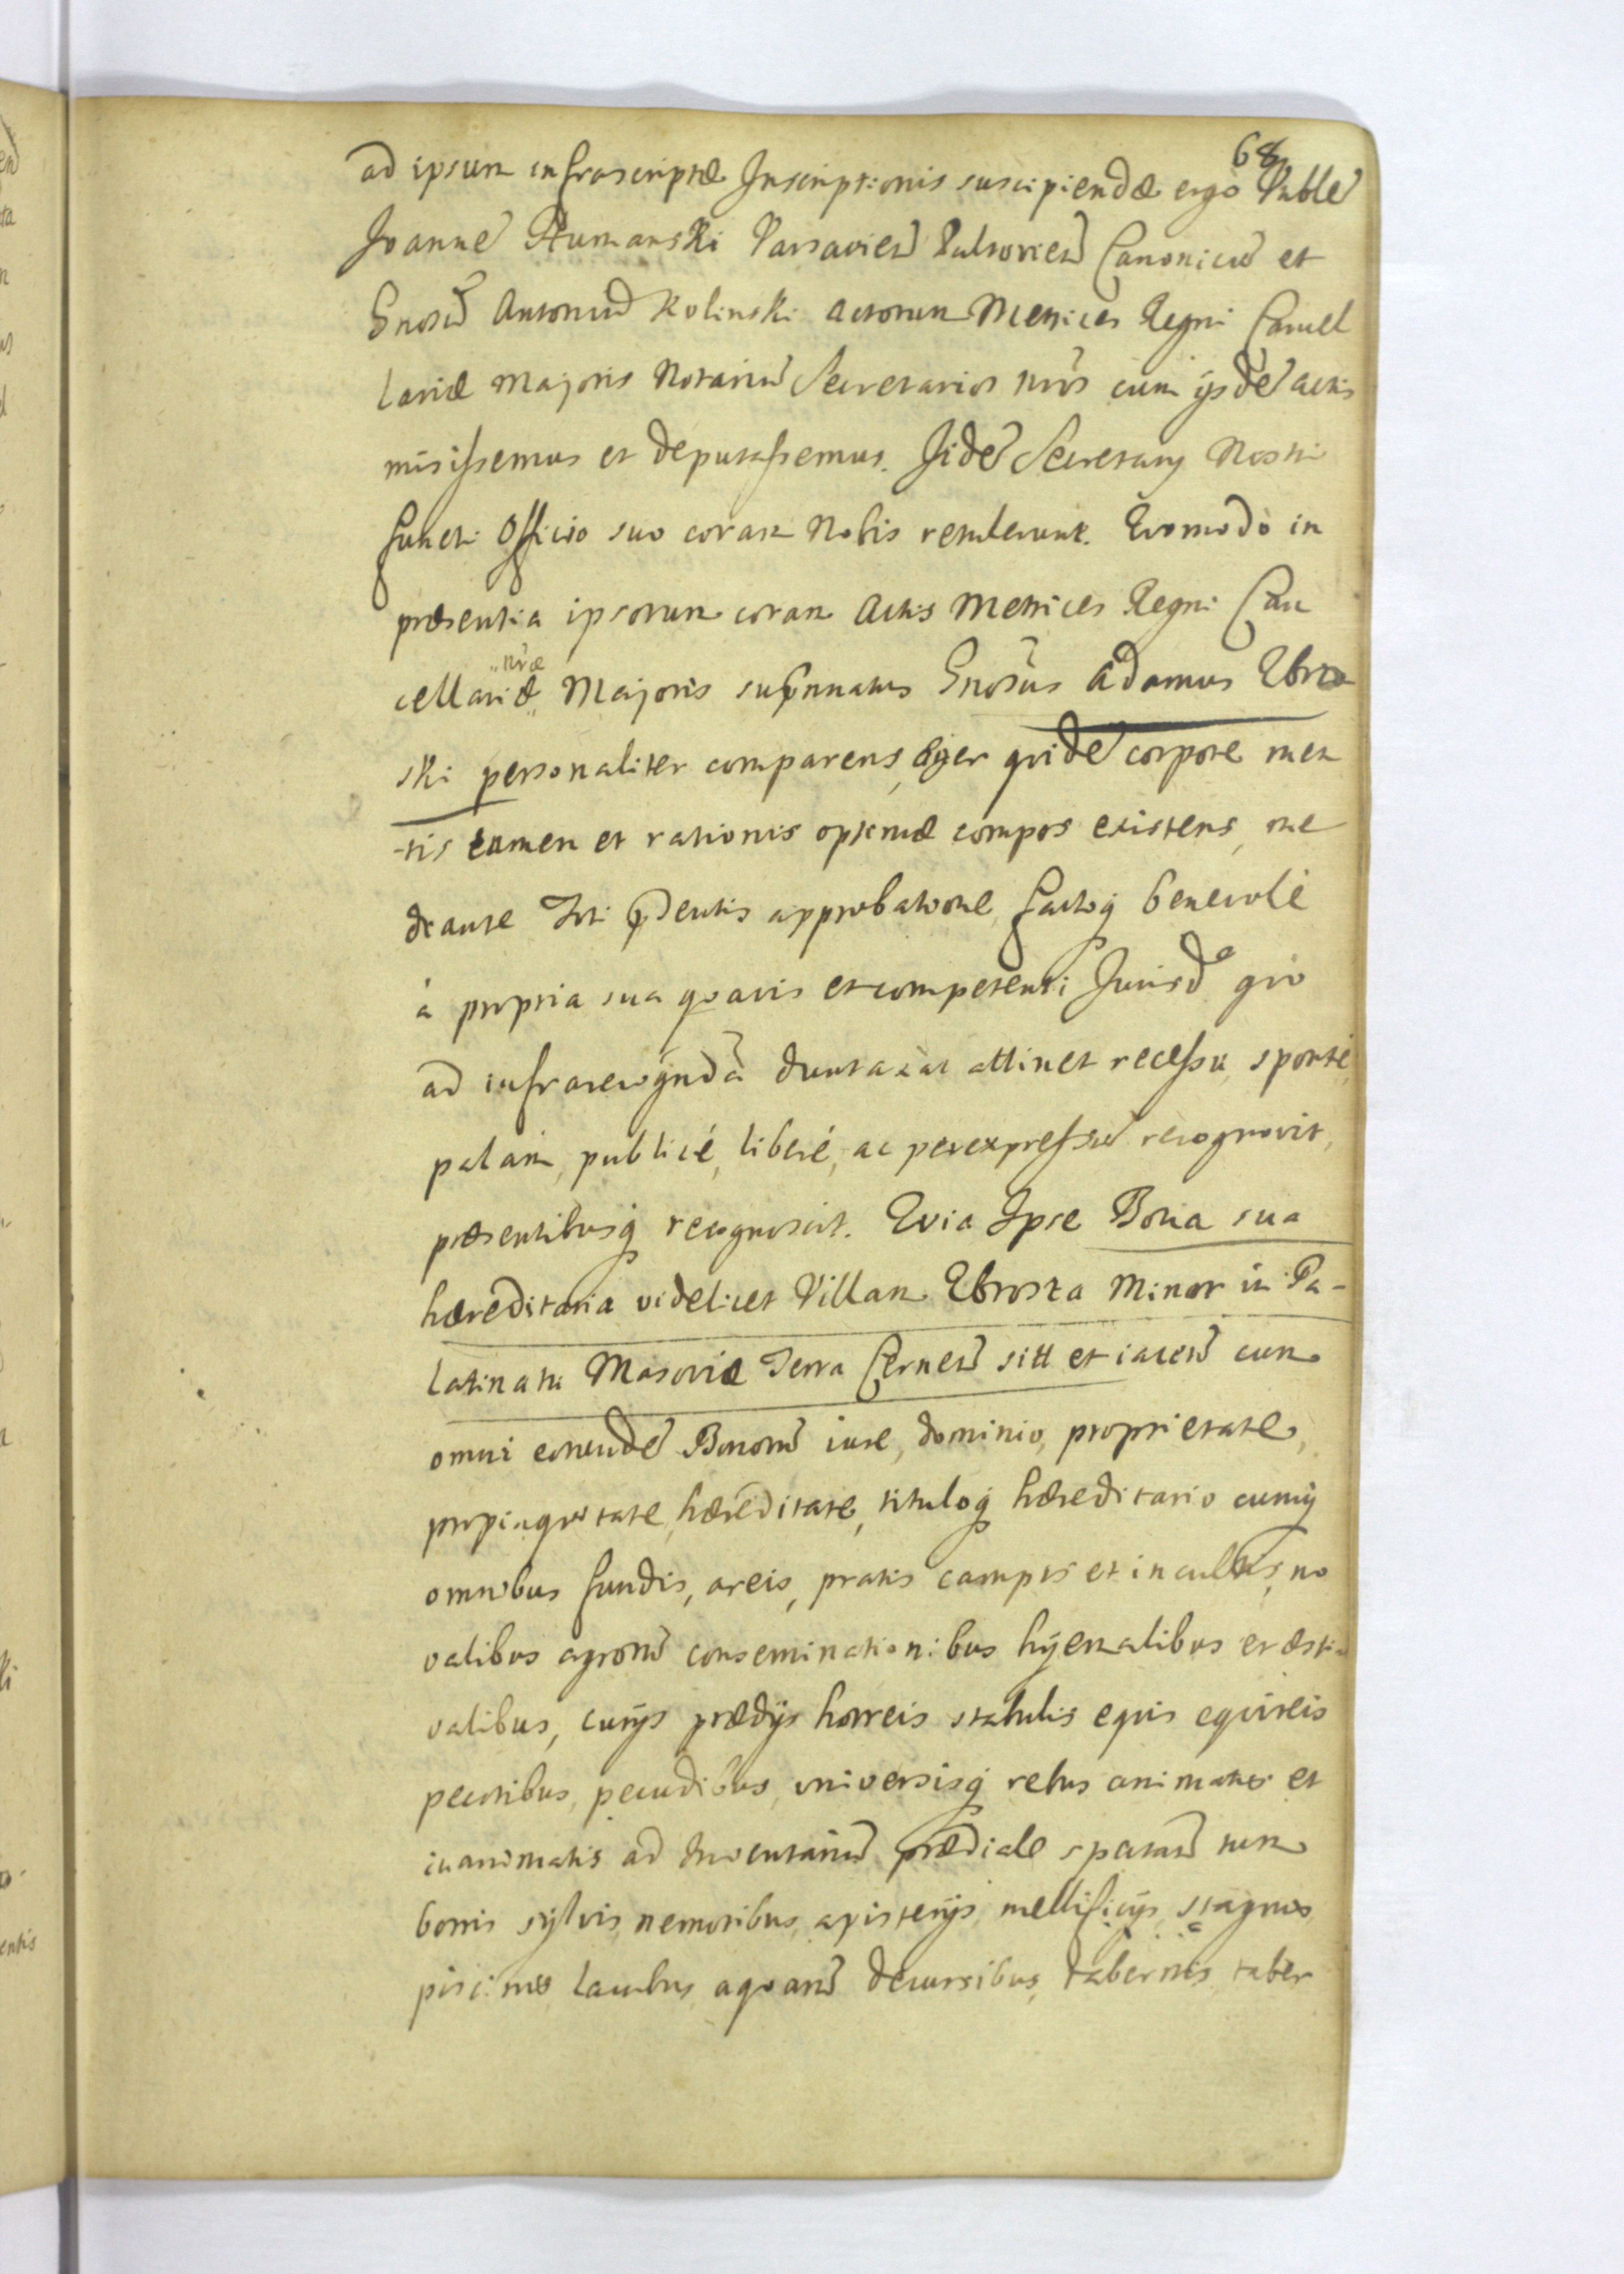 68
ad ipsum infrascriptæ Inscriptionis suscipiendæ ergo Vnble
Joanne Humanski Varsavien Pultovien Canonicu et
Gnosu Antoniu Kolinski Actorum Metrices Regni Cancel
lariæ Majoris Notariu Secretarios nros cum ijsde actis
misissemus et deputassemus. Jide Secretarij Nostri
functi Officio suo coram Nobis retulerunt. Quomodo in
præsentia ipsorum coram Actis Metrices Regni Can
cellariæ nræ Majoris supnnatus Gnosus Adamus Zbro
ski personaliter comparens, æger quide corpore men
tis tamen et rationis optimæ compos existens, me
diante Jtti pdentis approbatione, factoq benevole
à propria sua quavis et competenti Jurisde qvo
ad infrarecognda duntaxat attinet recessu, sponte,
palam, publicé, liberé, ac perexpressu recognovit,
præsentibusq recognoscit. Qvia Ipse Bona sua
hæreditaria videlicet Villam Zbrosza Minor in Pa-
latinatu Masoviæ Terra Cernen sitt et iacen cum
omni eorunde Bonoru iure, dominio, proprietate,
propinqvitate, hæreditate, tituloq hæreditario cumq
omnibus fundis, areis, pratis campis et incultis, no
valibus agroru conseminationibus hyemalibus et æsti
valibus, curijs prædijs horreis stabulis equis equireis
pecoribus, pecudibus, universisq rebus animatis et
inanimatis ad Inventariu prædiale spectan tum
borris sylvis, nemoribus, apisterijs, mellificijs, stagnis
piscinis lacubus aqvaru decursibus, tabernis, taber